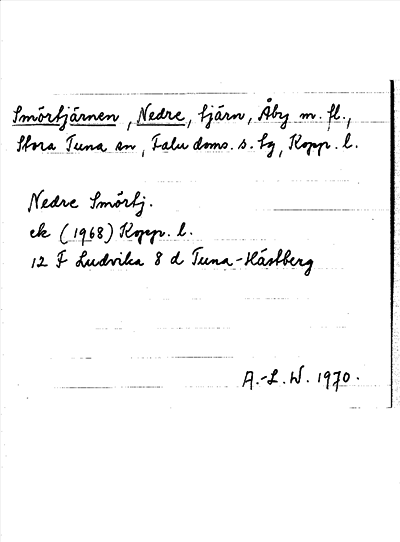 Smörtjärnen, Nedre, tjärn, Åby m. fl.,
Stora Tuna sn, Falu doms. s. tg, Kopp. l.
Nedre Smörtj.
ek (1968) Kopp. l.
12 F Ludvika 8 d Tuna-Hästberg
A.-L. W. 1970.